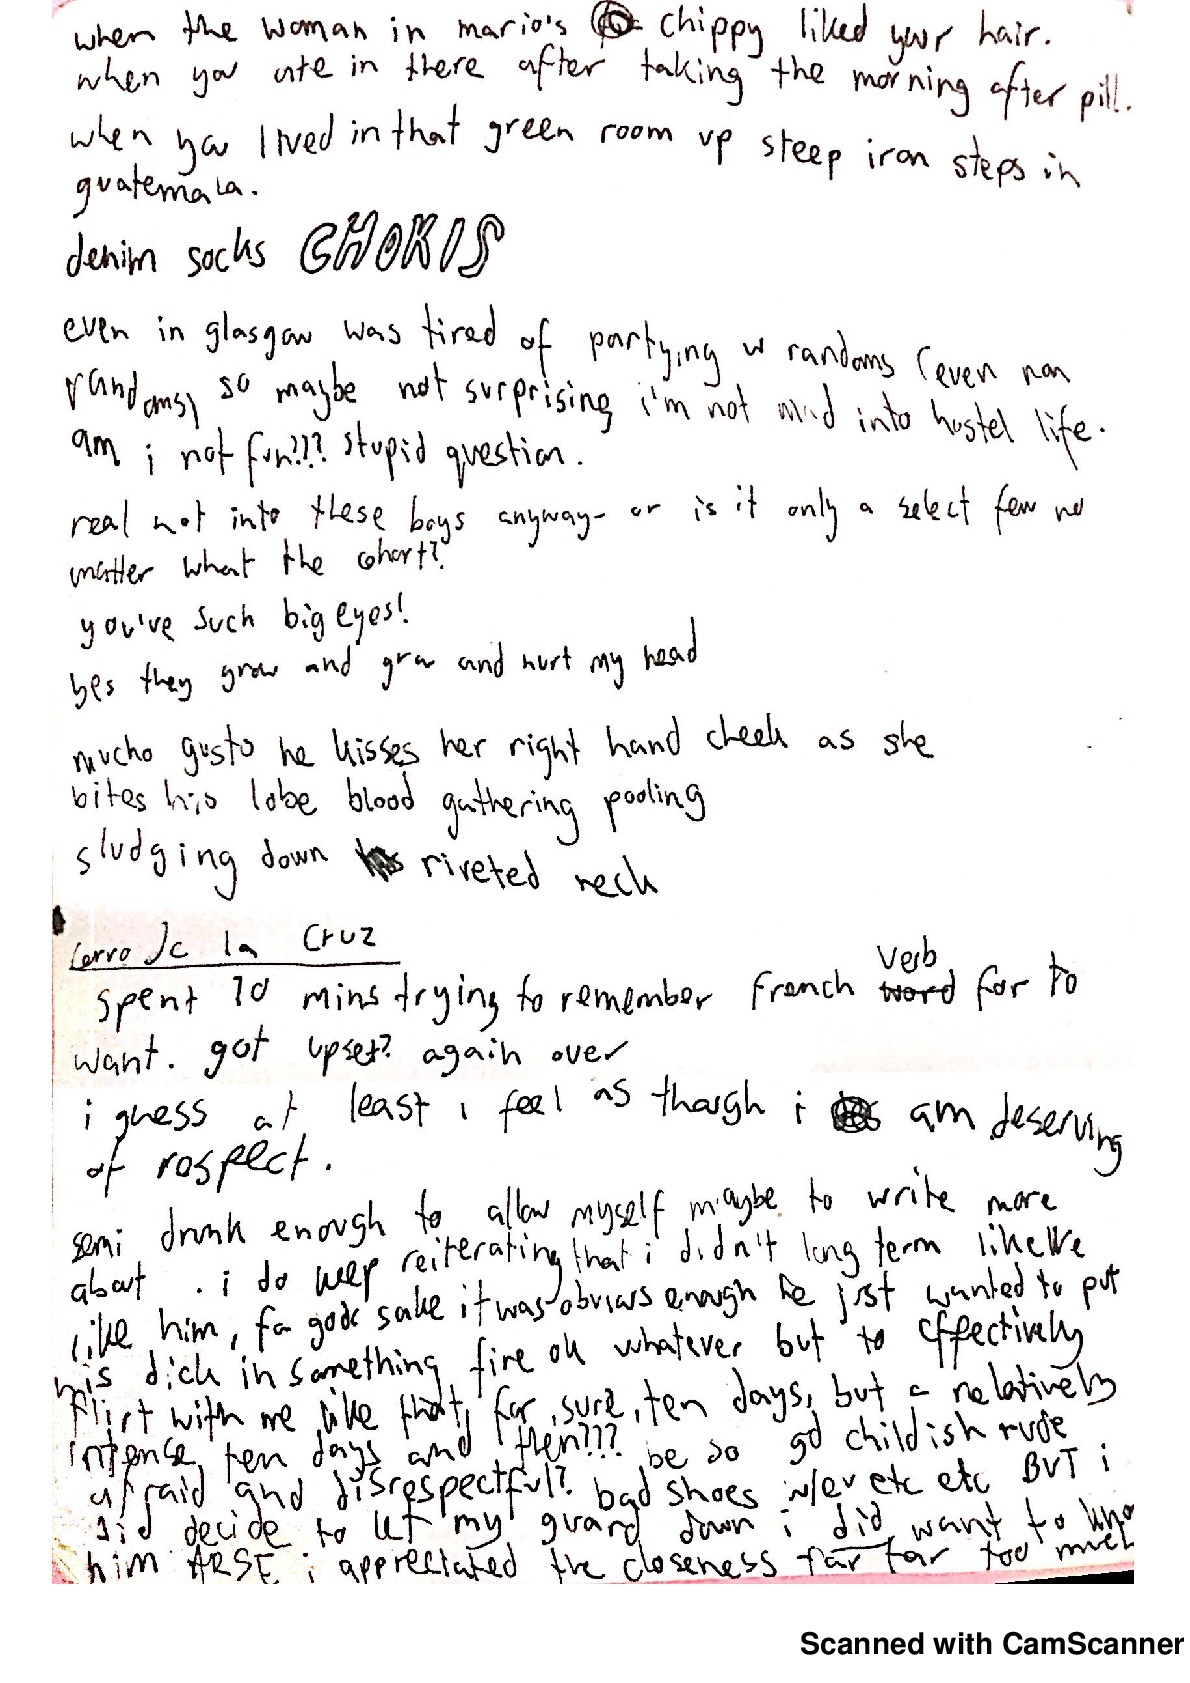 when the woman in mario's chippy liked your hair.
when you ate in there after taking the morning after pill.
when you lived in that green room up steep iron steps in
guatemala.
denim socks CHOKIS
even in glasgow was tired of partying w randoms (even non
randoms) so maybe not surprising i'm not mad into hostel life.
am i not fun??? stupid question.
real not into these boys anyway - or is it only a select few no
matter what the cohort?
you've such big eyes!
yes they grow and grow and hurt my head
mucho gusto he kisses her right hand cheek as she
bites his lobe blood gathering pooling
sludging down riveted neck
Cerro de la Cruz
spent 10 mins trying to remember french verb word for to
want. got upset? again over
i guess at least i feel as though i am deserving
of respect.
semi drunk enough to allow myself maybe to write more
about . i do keep reiterating that i didn't long term like We
like him, for gods sake it was obvious enough he just wanted to put
his dick in something fire ok whatever but to effectively
flirt with me like that, for, sure, ten days, but a relatively
intense ten days and then??? be so gd childish rude
afraid and disrespectful? bad shoes w/ev etc etc BUT i
did decide to let my guard down i did want to know
him ARSE i appreciated the closeness far far too much
Scanned with CamScanner